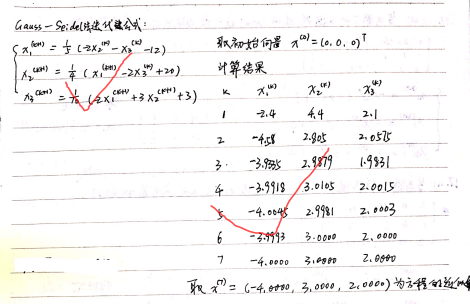 Gauss-Seidel法迭代格式:
x₁⁽ᵏ⁺¹⁾ = 1/5 (-2x₂⁽ᵏ⁾ - x₃⁽ᵏ⁾ - 12)
x₂⁽ᵏ⁺¹⁾ = 1/4 (x₁⁽ᵏ⁺¹⁾ - 2x₃⁽ᵏ⁾ + 20)
x₃⁽ᵏ⁺¹⁾ = 1/10 (-2x₁⁽ᵏ⁺¹⁾ + 3x₂⁽ᵏ⁺¹⁾ + 3)
取初始向量 x⁽⁰⁾ = (0, 0, 0)ᵀ
计算结果
k x₁⁽ᵏ⁾ x₂⁽ᵏ⁾ x₃⁽ᵏ⁾
1 -2.4 4.4 2.1
2 -4.58 2.805 2.0575
3. -3.9335 2.9879 1.9831
4 -3.9918 3.0105 2.0015
5 -4.0045 2.9981 2.0003
6 -3.9993 3.0000 2.0000
7 -4.0000 3.0000 2.0000
取 x⁽⁷⁾ = (-4.0000, 3.0000, 2.0000) 为方程的近似